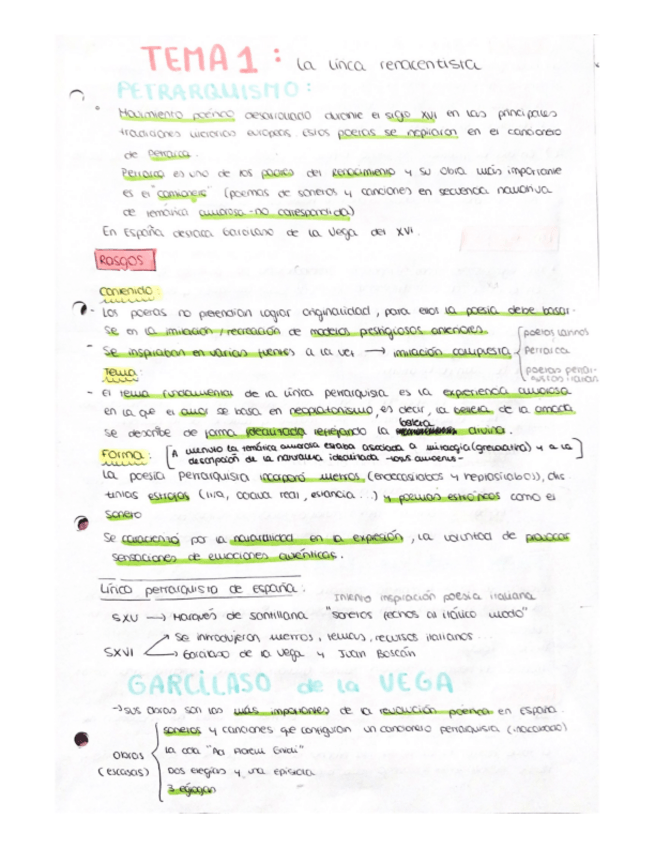 TEMA 1: la lírica renacentista
PETRARQUISMO:
Movimiento poético desarrollado durante el siglo XVI en las principales
tradiciones literarias europeas. Estos poetas se inspiraron en el cancionero
de Petrarca.
Petrarca es uno de los padres del Renacimiento y su obra más importante
es el "cancionero" (poemas de sonetos y canciones en secuencia narrativa
de temática amorosa-no correspondida)
En España destaca Garcilaso de la Vega del XVI.
RASGOS
contenido:
- Los poetas no pretendían lograr originalidad, para ellos la poesía debe basar-
se en la imitación/recreación de modelos prestigiosos anteriores.
- Se inspiraban en varias fuentes a la vez → imitación compuesta
poetas latinos
Petrarca
poetas petrar-
quistas italianos
Tema:
- El tema fundamental de la lírica petrarquista es la experiencia amorosa
en la que el amor se basa en neoplatonismo, es decir, la belleza de la amada
se describe de forma idealizada reflejando la belleza divina.
Forma:
[A menudo la temática amorosa estaba asociada a mitología (grecolatina) y a la
descripción de la naturaleza idealizada -locus amoenus-]
La poesía Petrarquista incorporó metros, (endecasílabos y heptasílabos), dis-
tintas estrofas (lira, octava real, estancia...) y poemas estróficos como el
soneto
Se caracterizó por la naturalidad en la expresión, la voluntad de provocar
sensaciones de emociones auténticas.
Lírica petrarquista de España:
Intento inspiración poesía italiana
SXV → Marqués de Santillana "sonetos fechos al itálico modo"
SXVI
Se introdujeron metros, temas, recursos italianos...
Garcilaso de la Vega y Juan Boscán
GARCILASO de la VEGA
→ sus obras son las más importantes de la revolución poética en España.
Obras
(escasas)
sonetos y canciones que configuran un cancionero petrarquista (inacabado)
la oda "Ad Florem Gnidi"
Dos elegías y una epístola
3 églogas